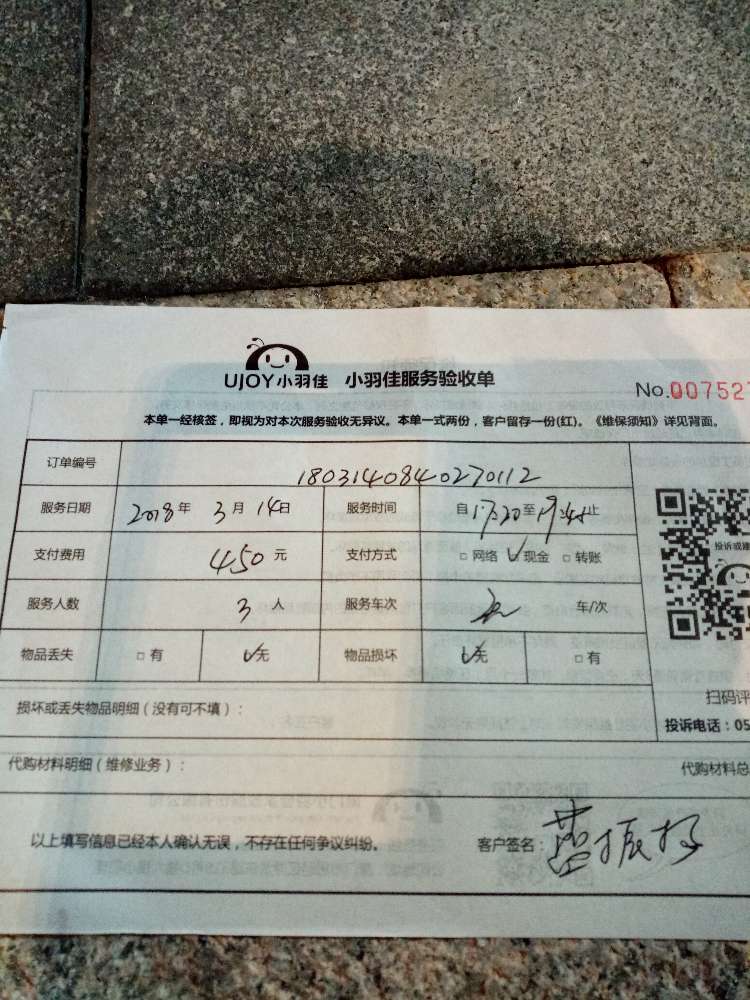 UJOY小羽佳 小羽佳服务验收单
No.007527
本单一经核签，即视为对本次服务验收无异议。本单一式两份，客户留存一份(红)。《维保须知》详见背面。
订单编号 1803140840270112
服务日期 2018年 3月 14日 服务时间 自17:20至19:45止
支付费用 450元 支付方式 □网络 ✓现金 □转账
投诉或建
服务人数 3人 服务车次 车/次
物品丢失 □有 ✓无 物品损坏 ✓无 □有
扫码评
损坏或丢失物品明细（没有可不填）：
投诉电话：05
代购材料明细（维修业务）： 代购材料总
以上填写信息已经本人确认无误，不存在任何争议纠纷。 客户签名：